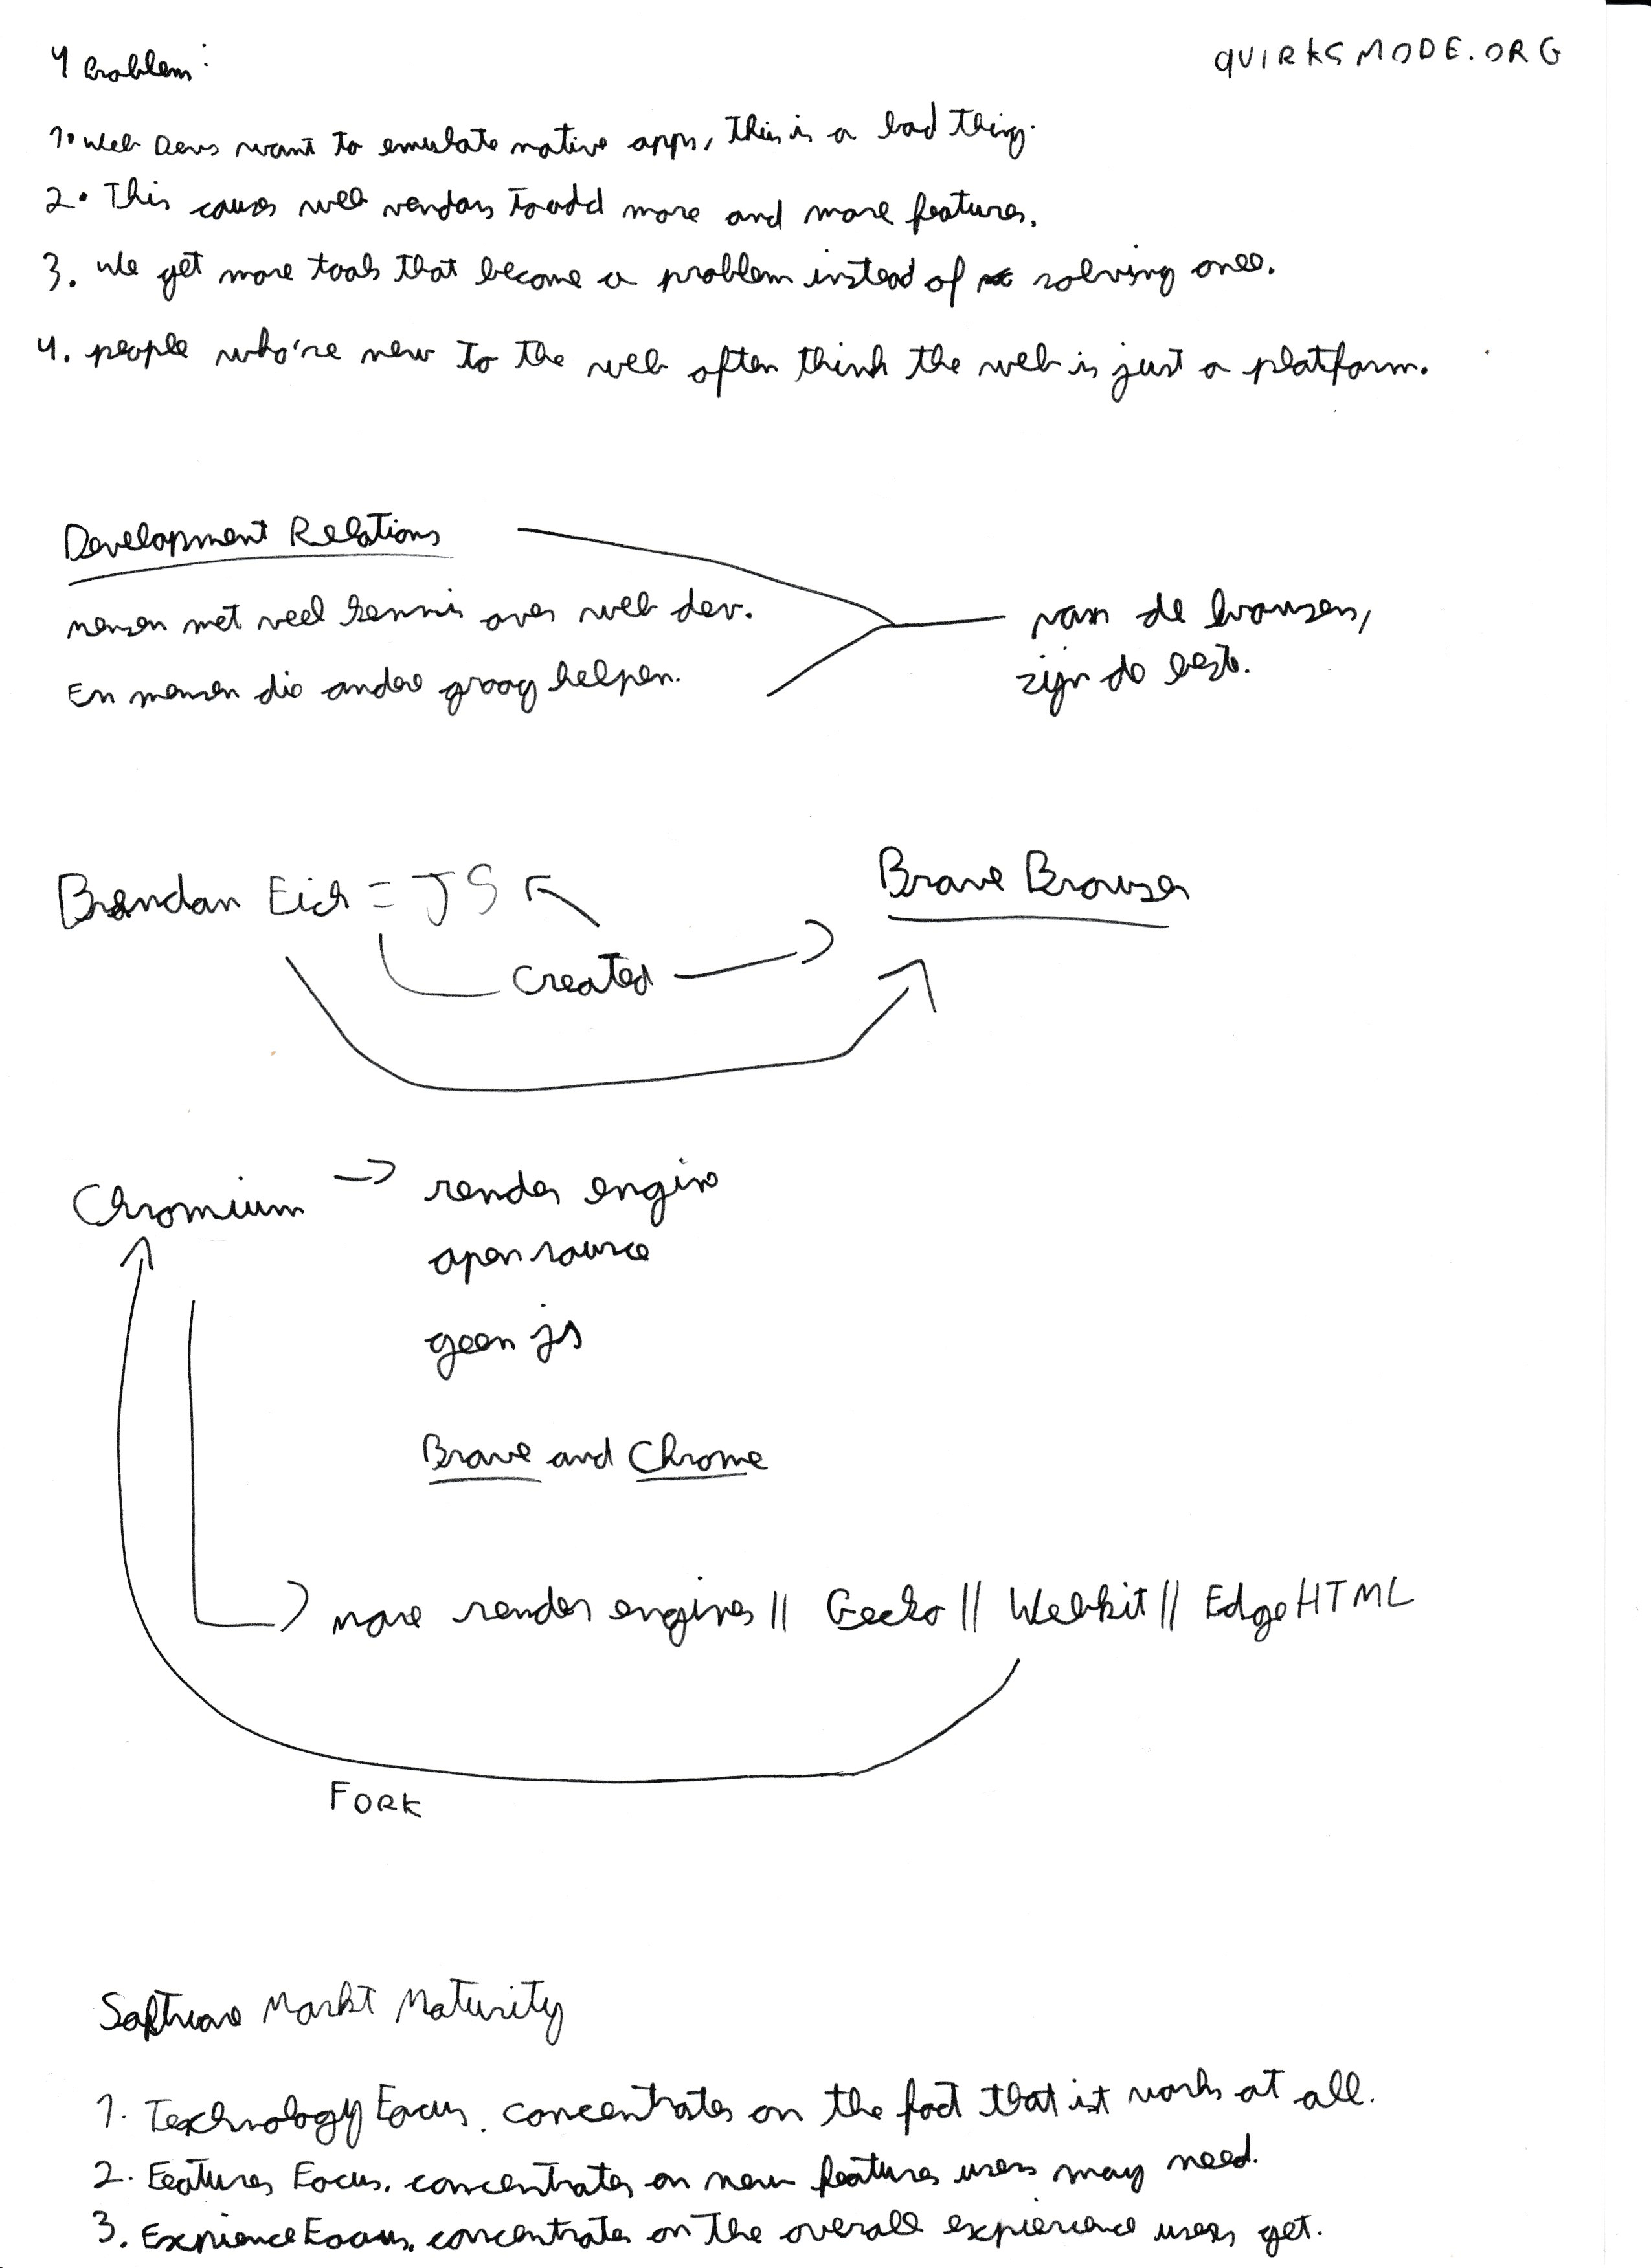 4 Problem:
QUIRKSMODE.ORG
1. Web Devs want to emulate native apps, This is a bad thing.
2. This causes web vendors to add more and more features.
3. We get more tools that become a problem instead of solving ones.
4. people who're new to the web often think the web is just a platform.
Development Relations
mensen met veel kennis over web dev.
En mensen die andere graag helpen.
van de browsers,
zijn de beste.
Brendan Eich = JS
Brave Browser
Created
Chromium → render engine
open source
geen js
Brave and Chrome
more render engines || Gecko || Webkit || EdgeHTML
FORK
Software Markt Maturity
1. Technology Focus. concentrates on the fact that ist works at all.
2. Features Focus. concentrates on new features users may need.
3. Exprience Focus. concentrates on the overall expierience users get.